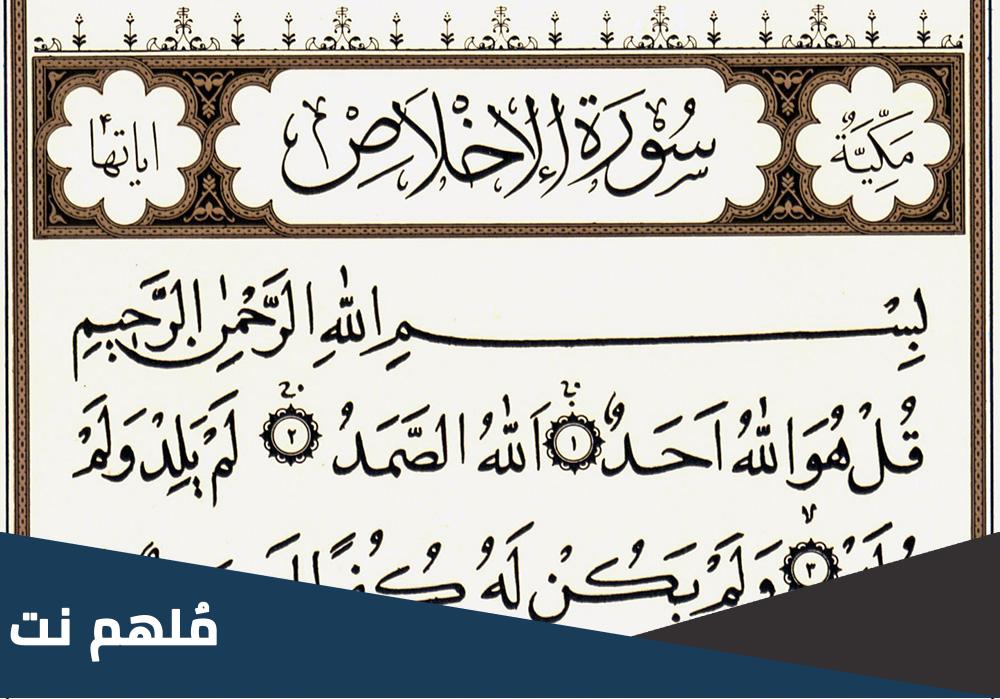 مَكِّيَّةٌ
سُورَةُ الإِخْلَاصِ
اياتها ۴
بِسْمِ اللهِ الرَّحْمٰنِ الرَّحِيمِ
قُلْ هُوَ اللهُ اَحَدٌ ١ اَللهُ الصَّمَدُ ٢ لَمْ يَلِدْ وَلَمْ
٣ وَلَمْ يَكُنْ لَهُ
مُلهم نت